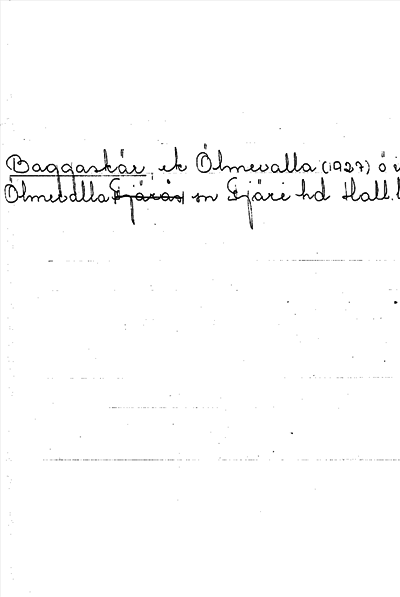 Baggaskär, ek Ölmevalla (1927) ö i
Ölmevalla Fjärås sn Fjäre hd Hall. l